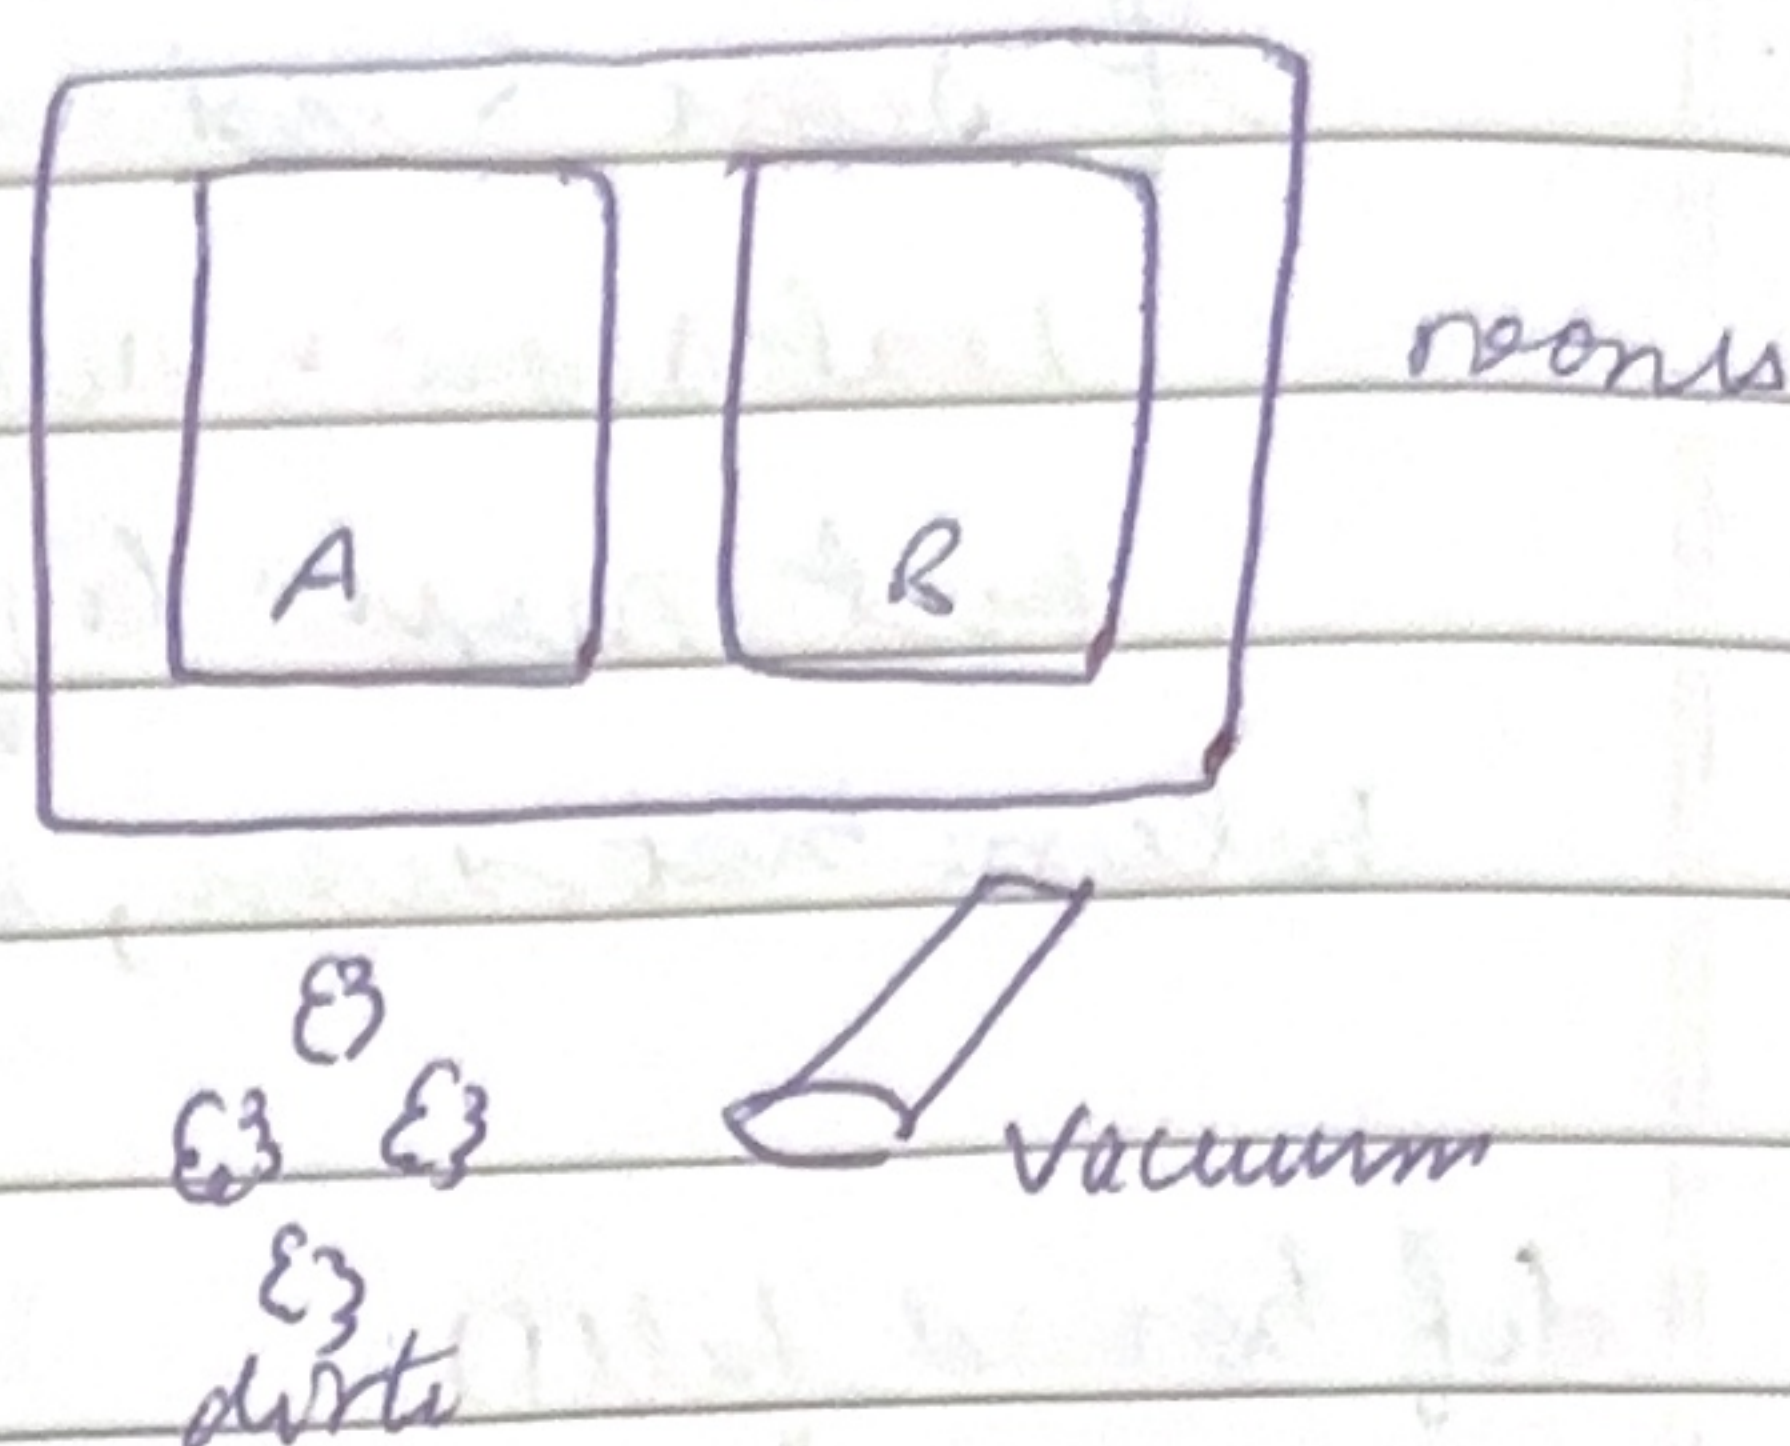 A B
rooms
Vacuum
dirt